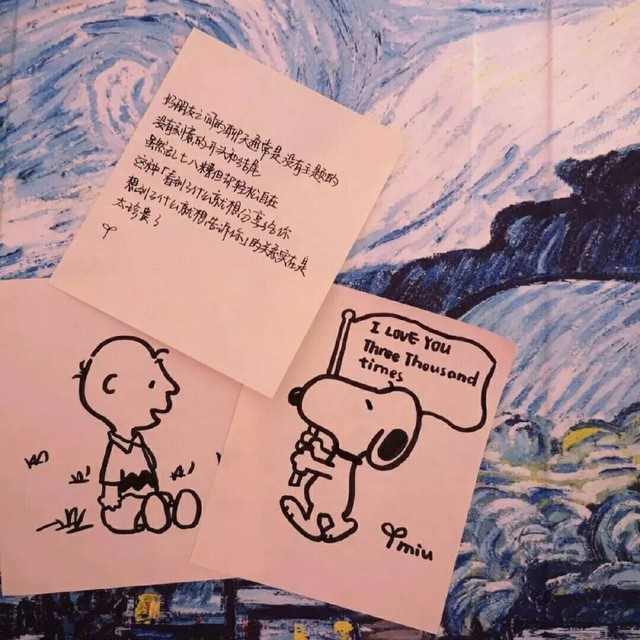 好朋友之间的聊天通常是没有主题的
没有刻意的开头和结尾
东拉西扯七八糟但却轻松自在
这种「看到了什么就想分享给你
想到了什么就想告诉你」的关系实在是
太珍贵了
I LOVE YOU
Three Thousand
times
miu